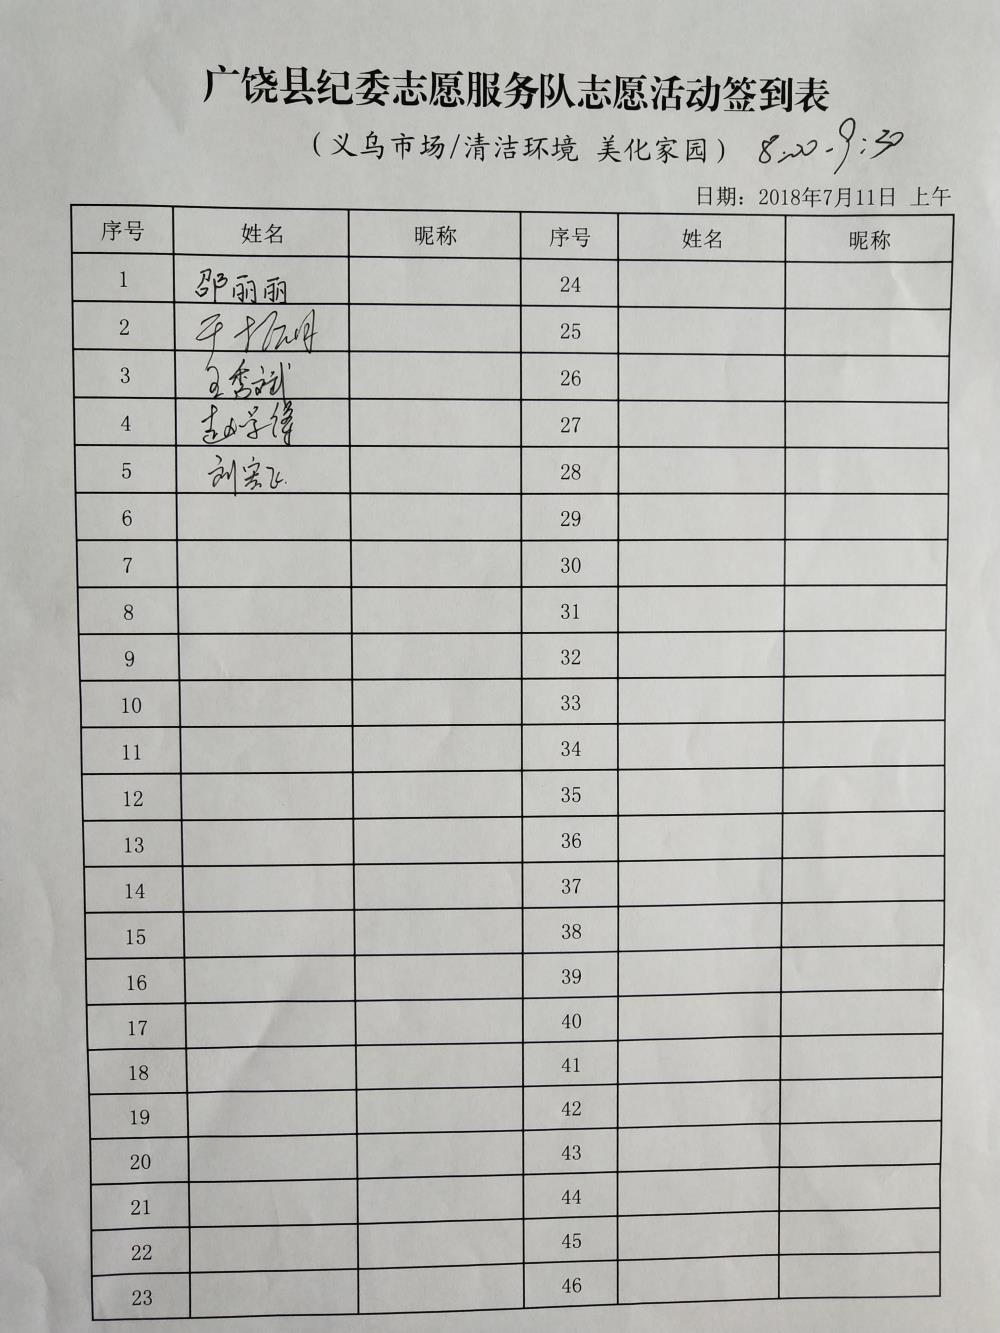 广饶县纪委志愿服务队志愿活动签到表
（义乌市场/清洁环境 美化家园） 8:00-9:30
日期：2018年7月11日 上午
序号 姓名 昵称 序号 姓名 昵称
1 邵丽丽 24
2 25
3 王秀斌 26
4 赵学锋 27
5 刘宏飞 28
6 29
7 30
8 31
9 32
10 33
11 34
12 35
13 36
14 37
15 38
16 39
17 40
18 41
19 42
20 43
21 44
22 45
23 46